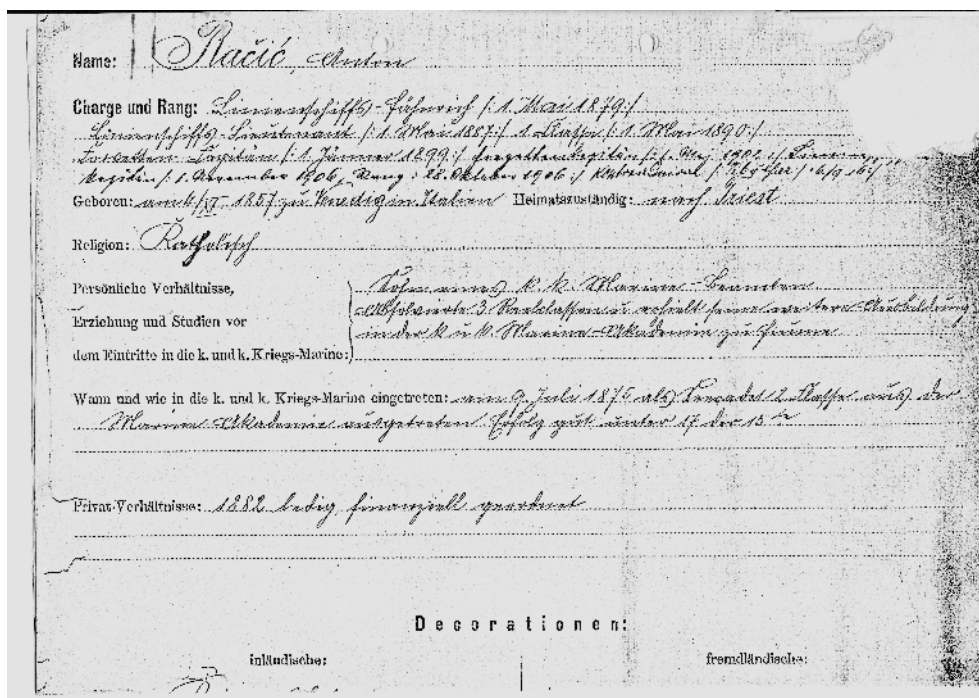 Name: Račić, Anton
Charge und Rang: Linienschiffs-Fähnrich /: 1. Mai 1879 :/
Linienschiffs-Lieutenant /: 1. Mai 1887 :/ 1. Classe /: 1. Mai 1890 :/
Corvetten-Capitän /: 1. Jänner 1899 :/ Fregattenkapitän /: 1. Mai :/
kapitän /: 1. November 1906, Rang: 28. Oktober 1906 :/
Geboren: am 1857 zu Venedig in Italien Heimatszuständig: nach Triest
Religion: Katholisch
Persönliche Verhältnisse,
Erziehung und Studien vor
dem Eintritte in die k. und k. Kriegs-Marine:
Sohn eines k. k. Marine-Beamten
absolvirte 3 Realclassen u. erhielt seine weitere Ausbildung
in der k. u. k. Marine-Akademie zu Fiume
Wann und wie in die k. und k. Kriegs-Marine eingetreten: am 9. Juli 1874 als Seecadet 2. Classe aus der
Marine-Akademie ausgetreten Erfolg gut unter 17 der 13te
Privat-Verhältnisse: 1882 ledig, finanziell geordnet
Decorationen:
inländische: fremdländische: